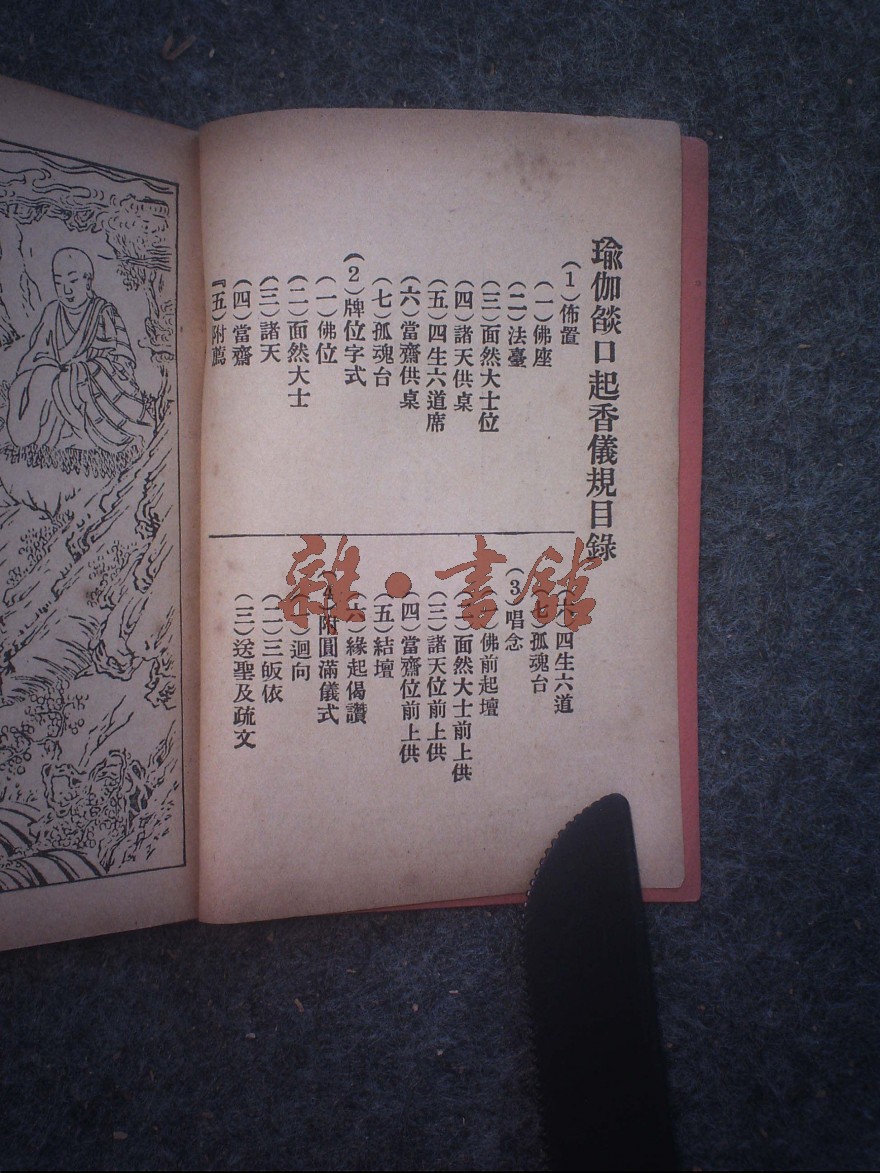 瑜伽燄口起香儀規目錄
(1)佈置
(一)佛座
(二)法臺
(三)面然大士位
(四)諸天供桌
(五)四生六道席
(六)當齋供桌
(七)孤魂台
(2)牌位字式
(一)佛位
(二)面然大士
(三)諸天
(四)當齋
『五)附薦
(六)四生六道
(七)孤魂台
(3)唱念
(一)佛前起壇
(二)面然大士前上供
(三)諸天位前上供
(四)當齋位前上供
(五)結壇
(六)緣起偈讚
(4)附圓滿儀式
(一)迴向
(二)三皈依
(三)送聖及疏文
雜·書館